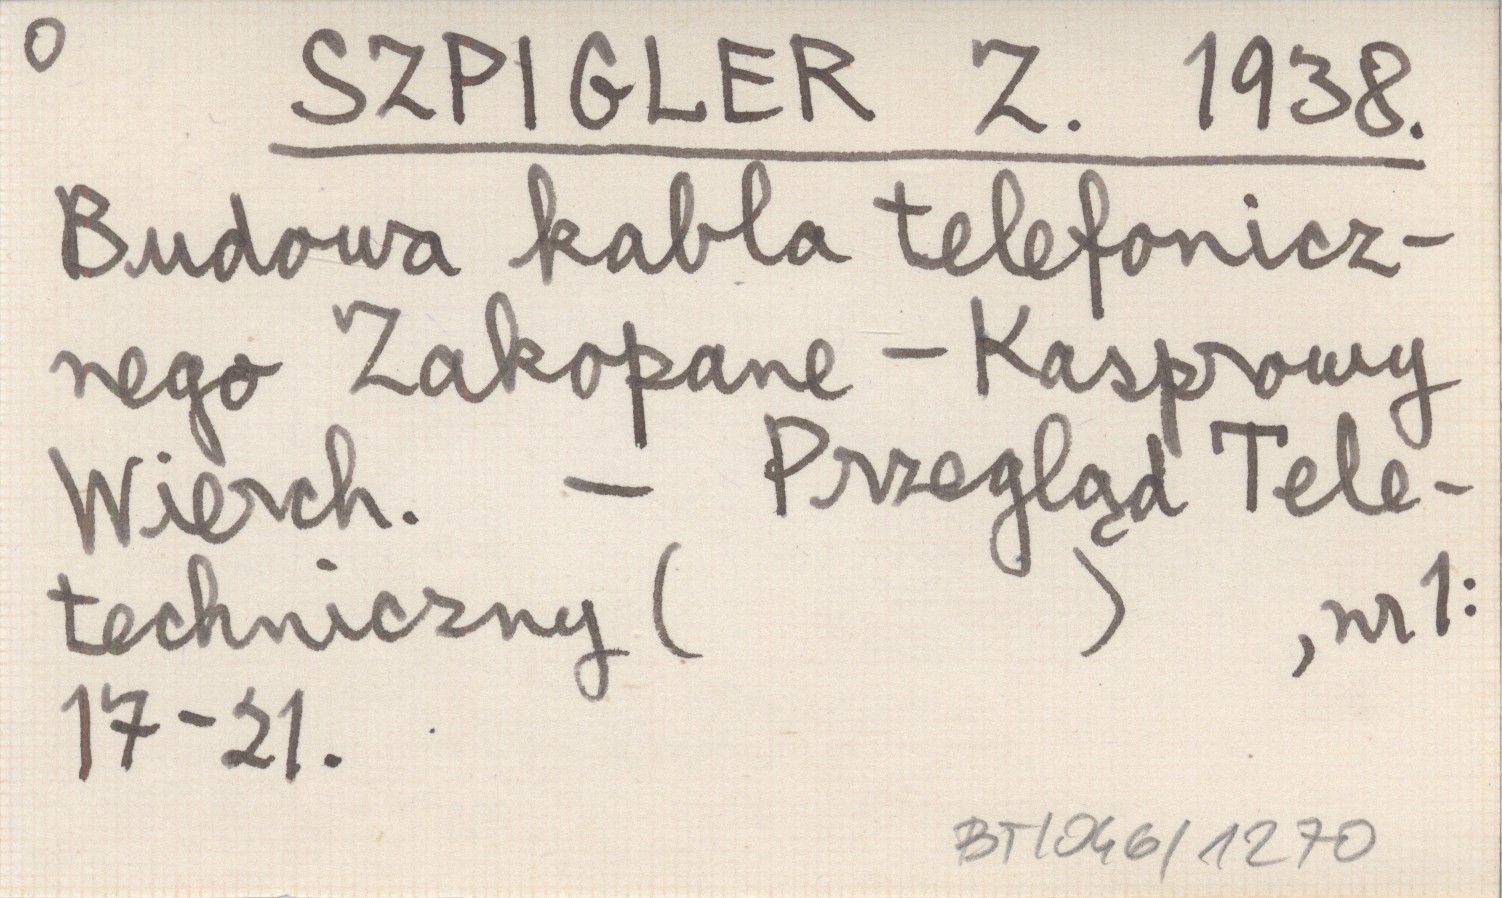 O SZPIGLER Z. 1938.
Budowa kabla telefonicz-
nego Zakopane - Kasprowy
Wierch. - Przegląd Tele-
techniczny ( ) , nr 1:
17-21.
BT/046/1270